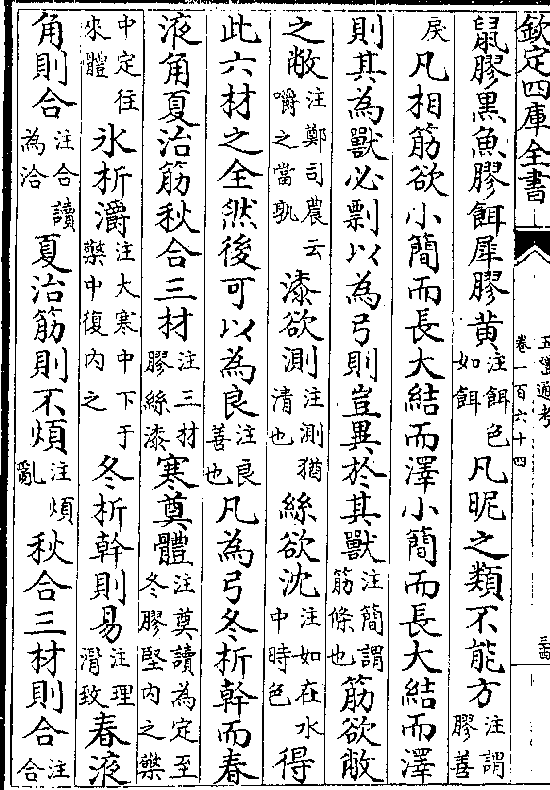 欽定四庫全書
五禮通考
卷一百六十四
鼠膠黑魚膠餌犀膠黃注餌色如餌凡昵之類不能方注謂膠善
戾凡相筋欲小簡而長大結而澤小簡而長大結而澤
則其為獸必剽以為弓則豈異於其獸注簡謂筋條也筋欲敝
之敝注鄭司農云嚼之當孰漆欲測注測猶清也絲欲沈注如在水中時色得
此六材之全然後可以為良注良善也凡為弓冬析幹而春
液角夏治筋秋合三材注三材膠絲漆寒奠體注奠讀為定至冬膠堅内之檠
中定往來體冰析灂注大寒中下于檠中復内之冬析幹則易注理滑致春液
角則合注合讀為洽夏治筋則不煩注煩亂秋合三材則合注合